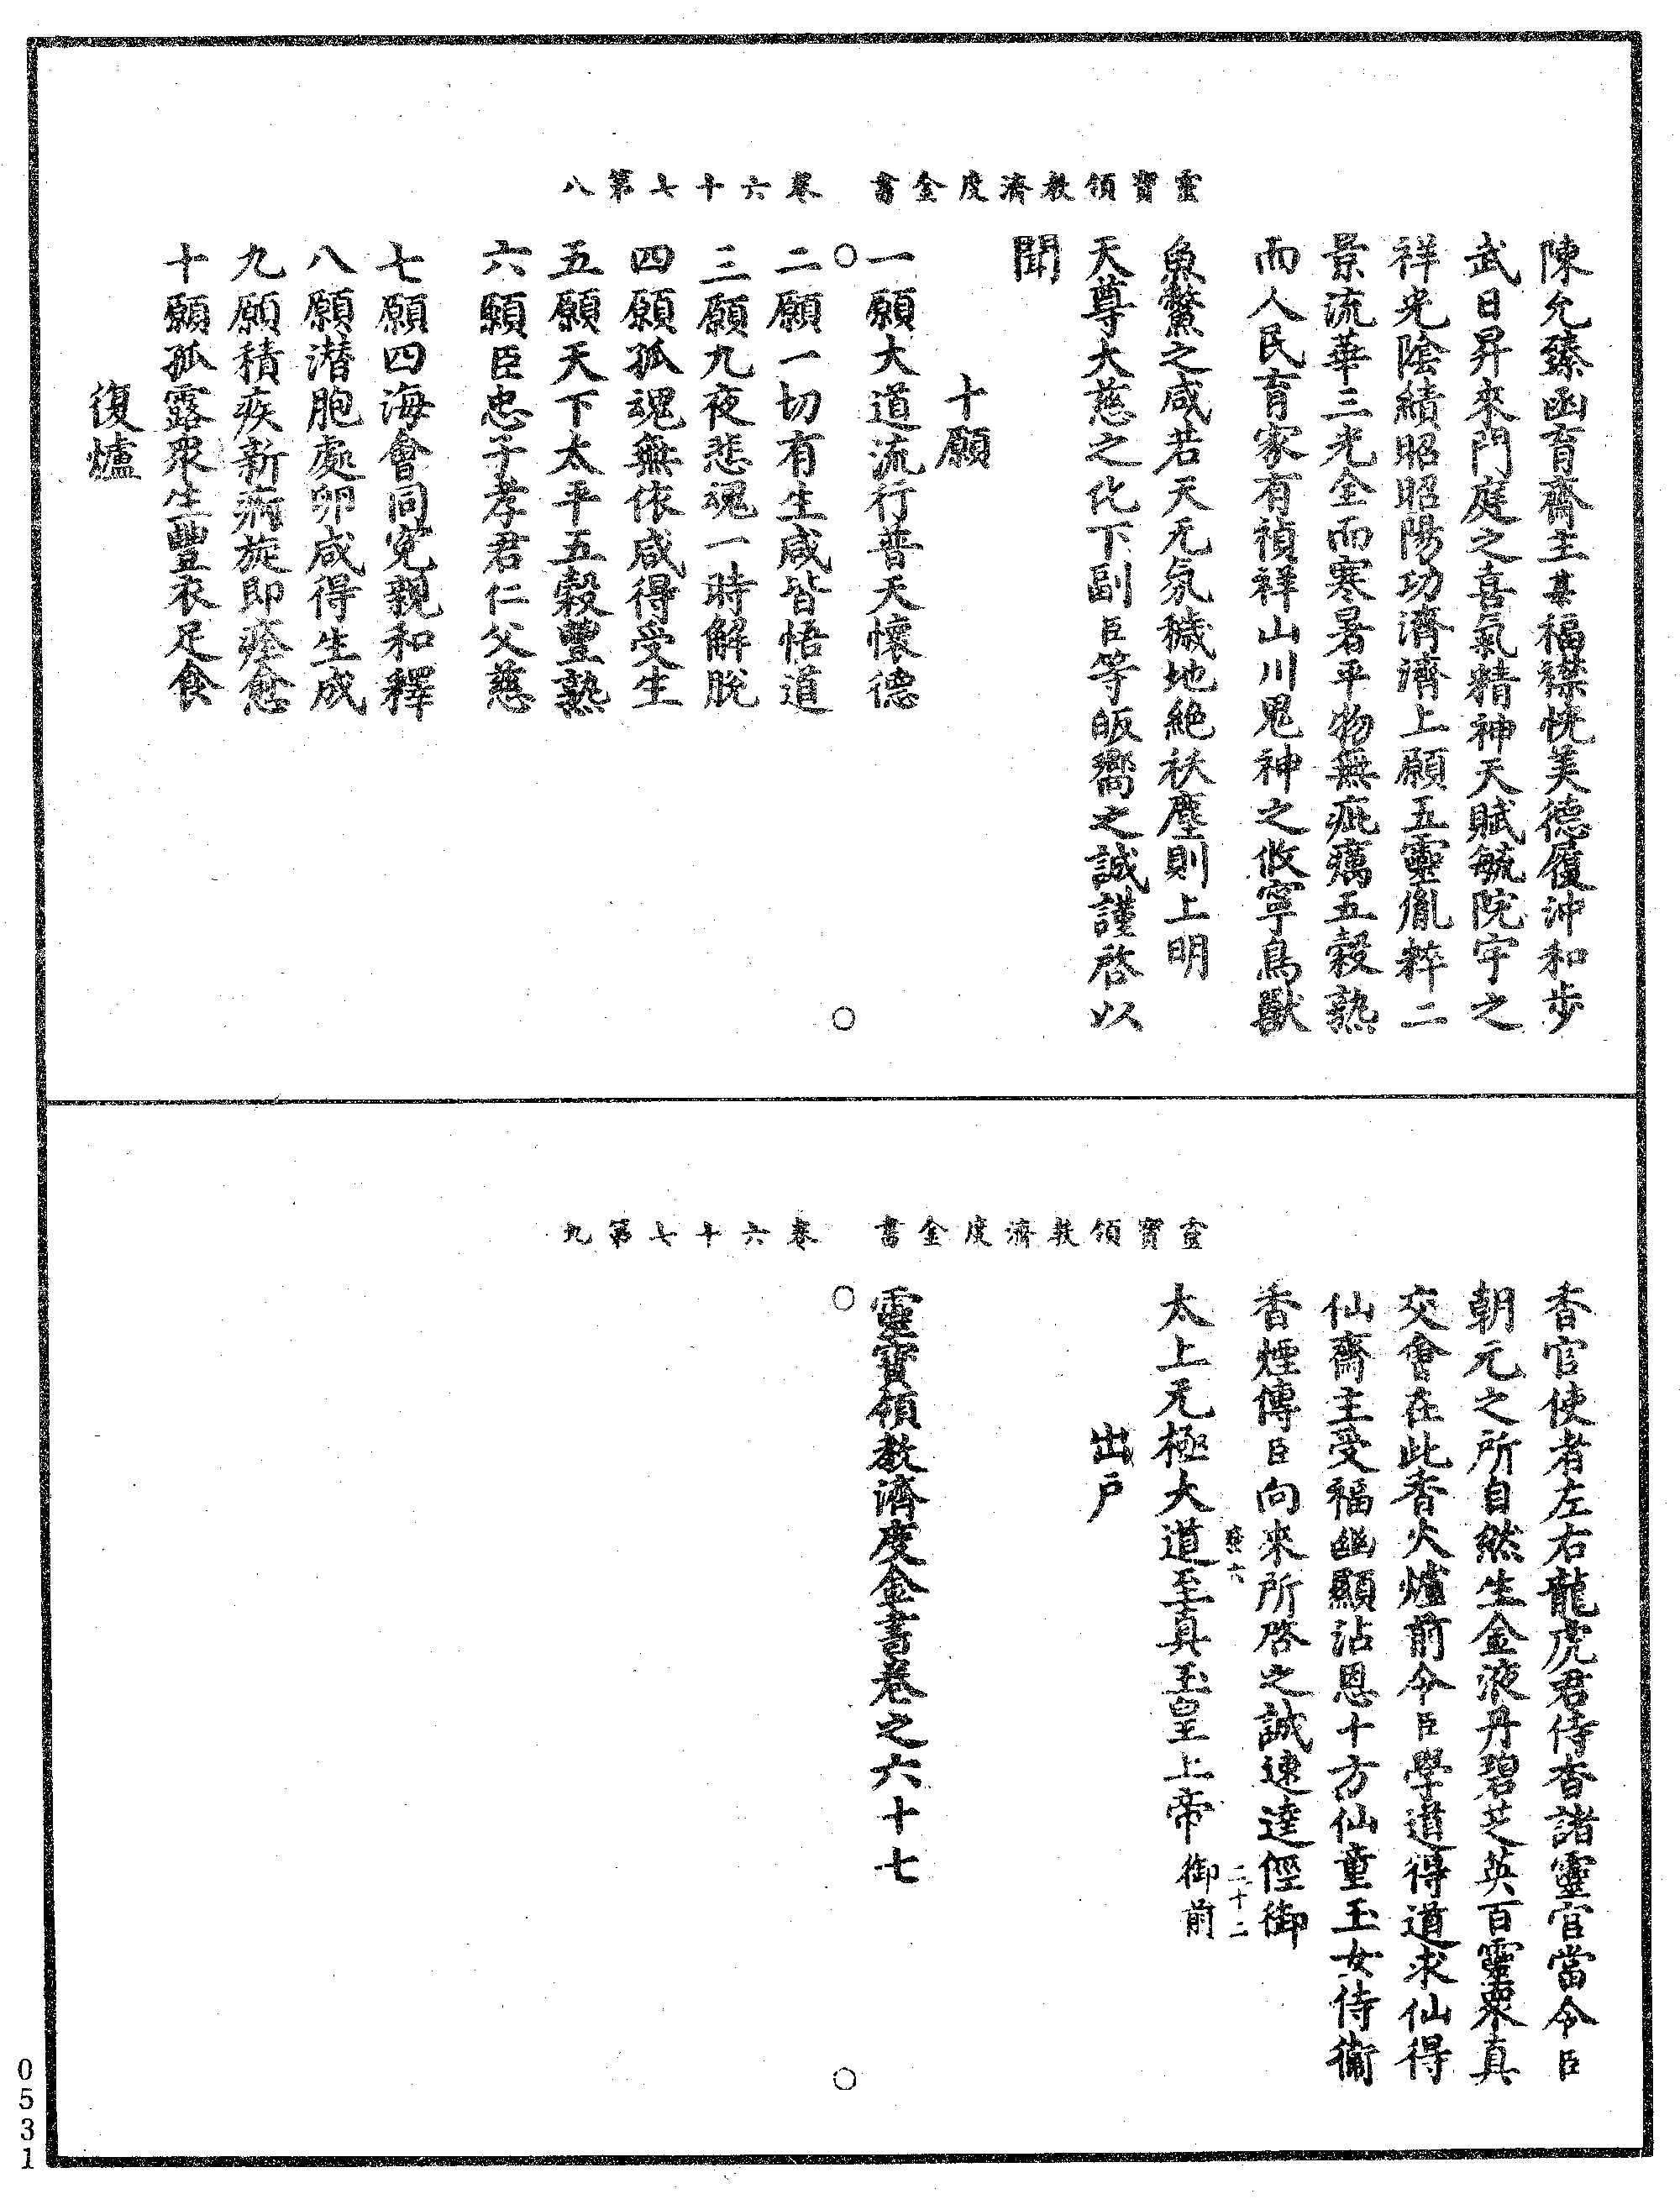 靈寶領教濟度金書　卷六十七第八
陳允臻函育齋主某福襟恍美德履沖和步
武日昇來門庭之喜氣精神天賦毓院宇之
祥光陰績昭昭陽功濟濟上願五靈胤粹二
景流華三光全而寒暑平物無疵癘五穀熟
而人民育家有禎祥山川鬼神之攸寧鳥獸
魚鱉之咸若天无氛穢地絕祅塵則上明
天尊大慈之化下副臣等皈嚮之誠謹啓以
聞
十願
一願大道流行普天懷德
二願一切有生咸皆悟道
三願九夜悲魂一時解脫
四願孤魂無依咸得受生
五願天下太平五穀豐熟
六願臣忠子孝君仁父慈
七願四海會同冤親和釋
八願潛胞處卵咸得生成
九願積疾新痾旋即痊愈
十願孤露眾生豐衣足食
復爐
靈寶領教濟度金書　卷六十七第九
香官使者左右龍虎君侍香諸靈官當令臣
朝元之所自然生金液丹碧芝英百靈眾真
交會在此香火爐前令臣學道得道求仙得
仙齋主受福幽顯沾恩十方仙童玉女侍衛
香煙傳臣向來所啓之誠速達徑御
六　二十二
太上无極大道至真玉皇上帝　御前
出戶
靈寶領教濟度金書卷之六十七
0531